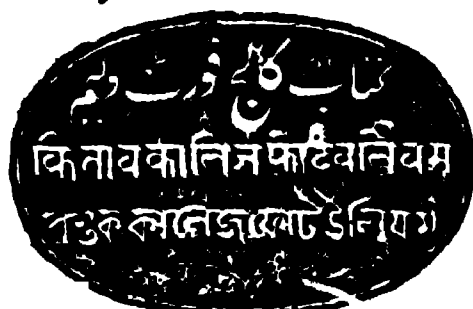 کتاب کالج فورٹ ولیم
किताव कालिज फोर्टवलियम
পুস্তক কালেজ ফোর্ট উলিয়ম